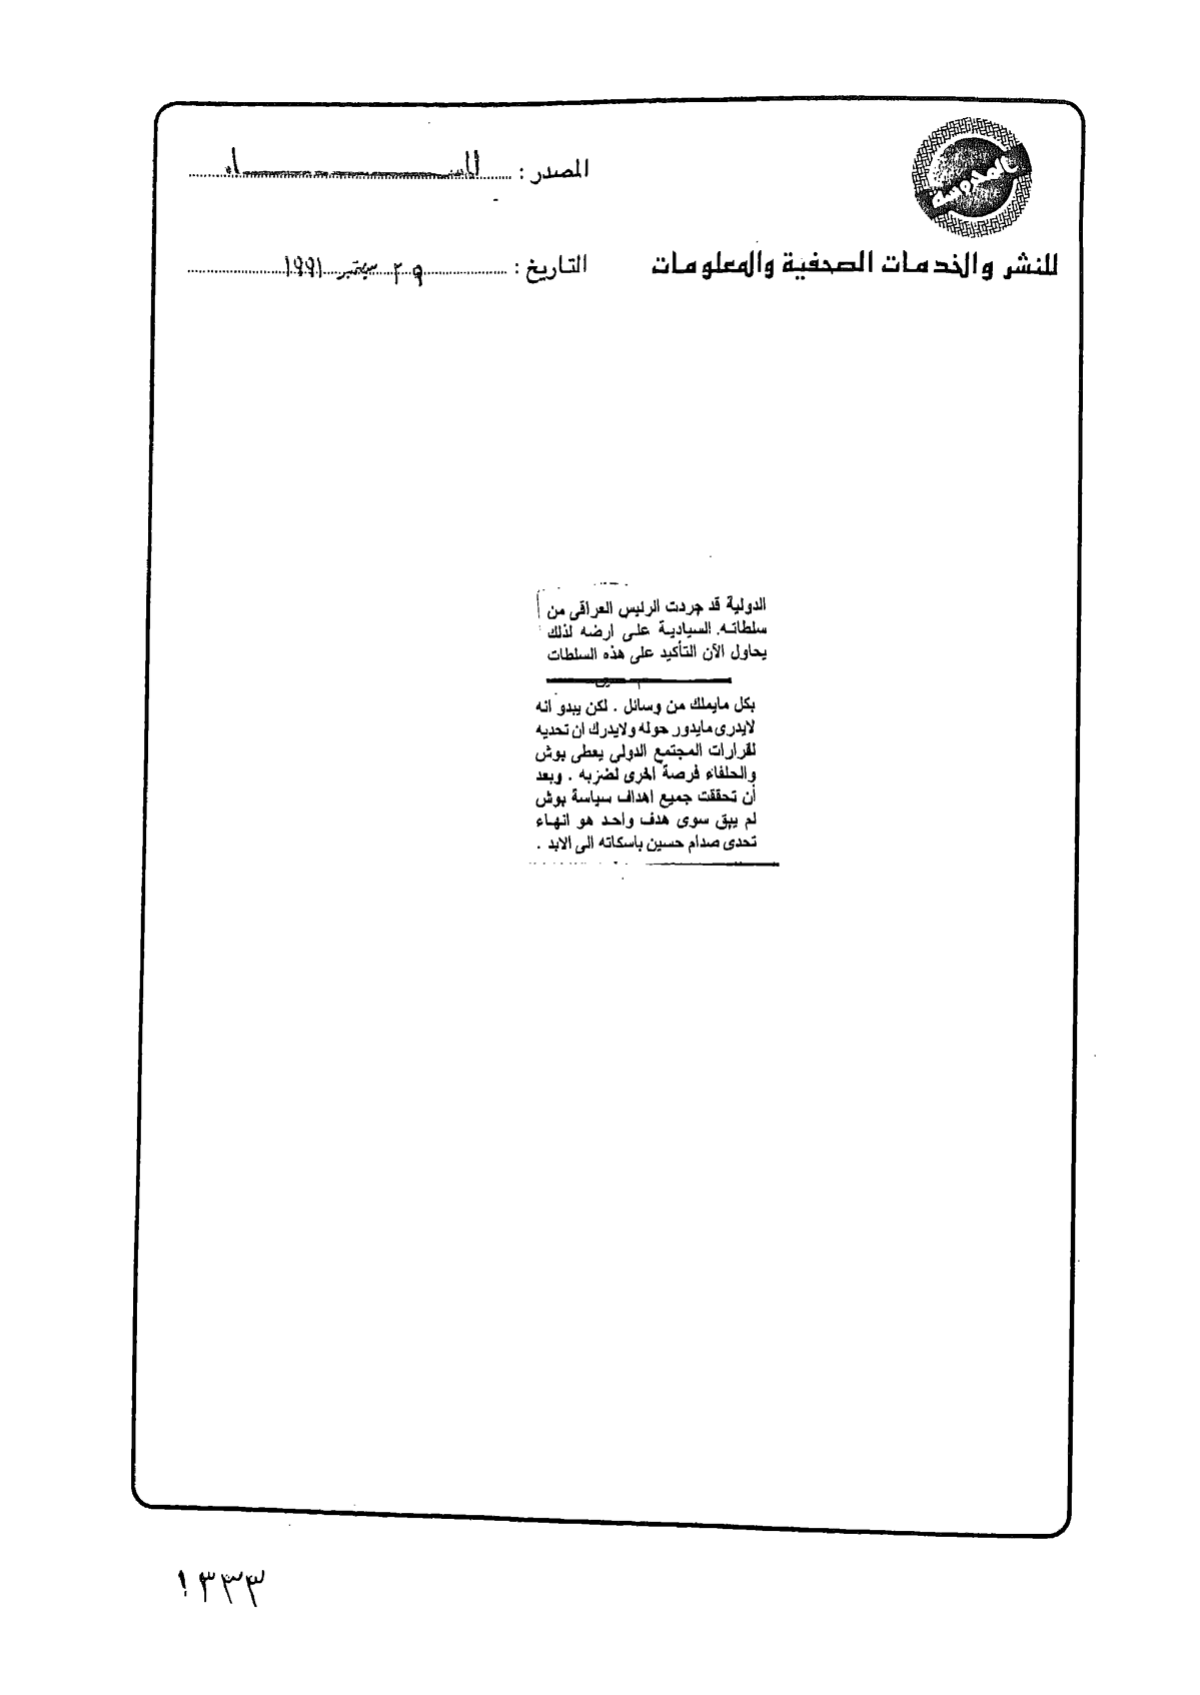 المصدر : المســــــــاء
التاريخ : ٢٩ سبتمبر ١٩٩١
للنشر والخدمات الصحفية والمعلومات
الدولية قد جردت الرئيس العراقى من
سلطاته. السيادية على ارضه لذلك
يحاول الآن التأكيد على هذه السلطات
بكل مايملك من وسائل . لكن يبدو انه
لايدرى مايدور حوله ولايدرك ان تحديه
لقرارات المجتمع الدولى يعطى بوش
والحلفاء فرصة اخرى لضربه . وبعد
أن تحققت جميع اهداف سياسة بوش
لم يبق سوى هدف واحد هو انهاء
تحدى صدام حسين باسكاته الى الابد .
١٣٣٣